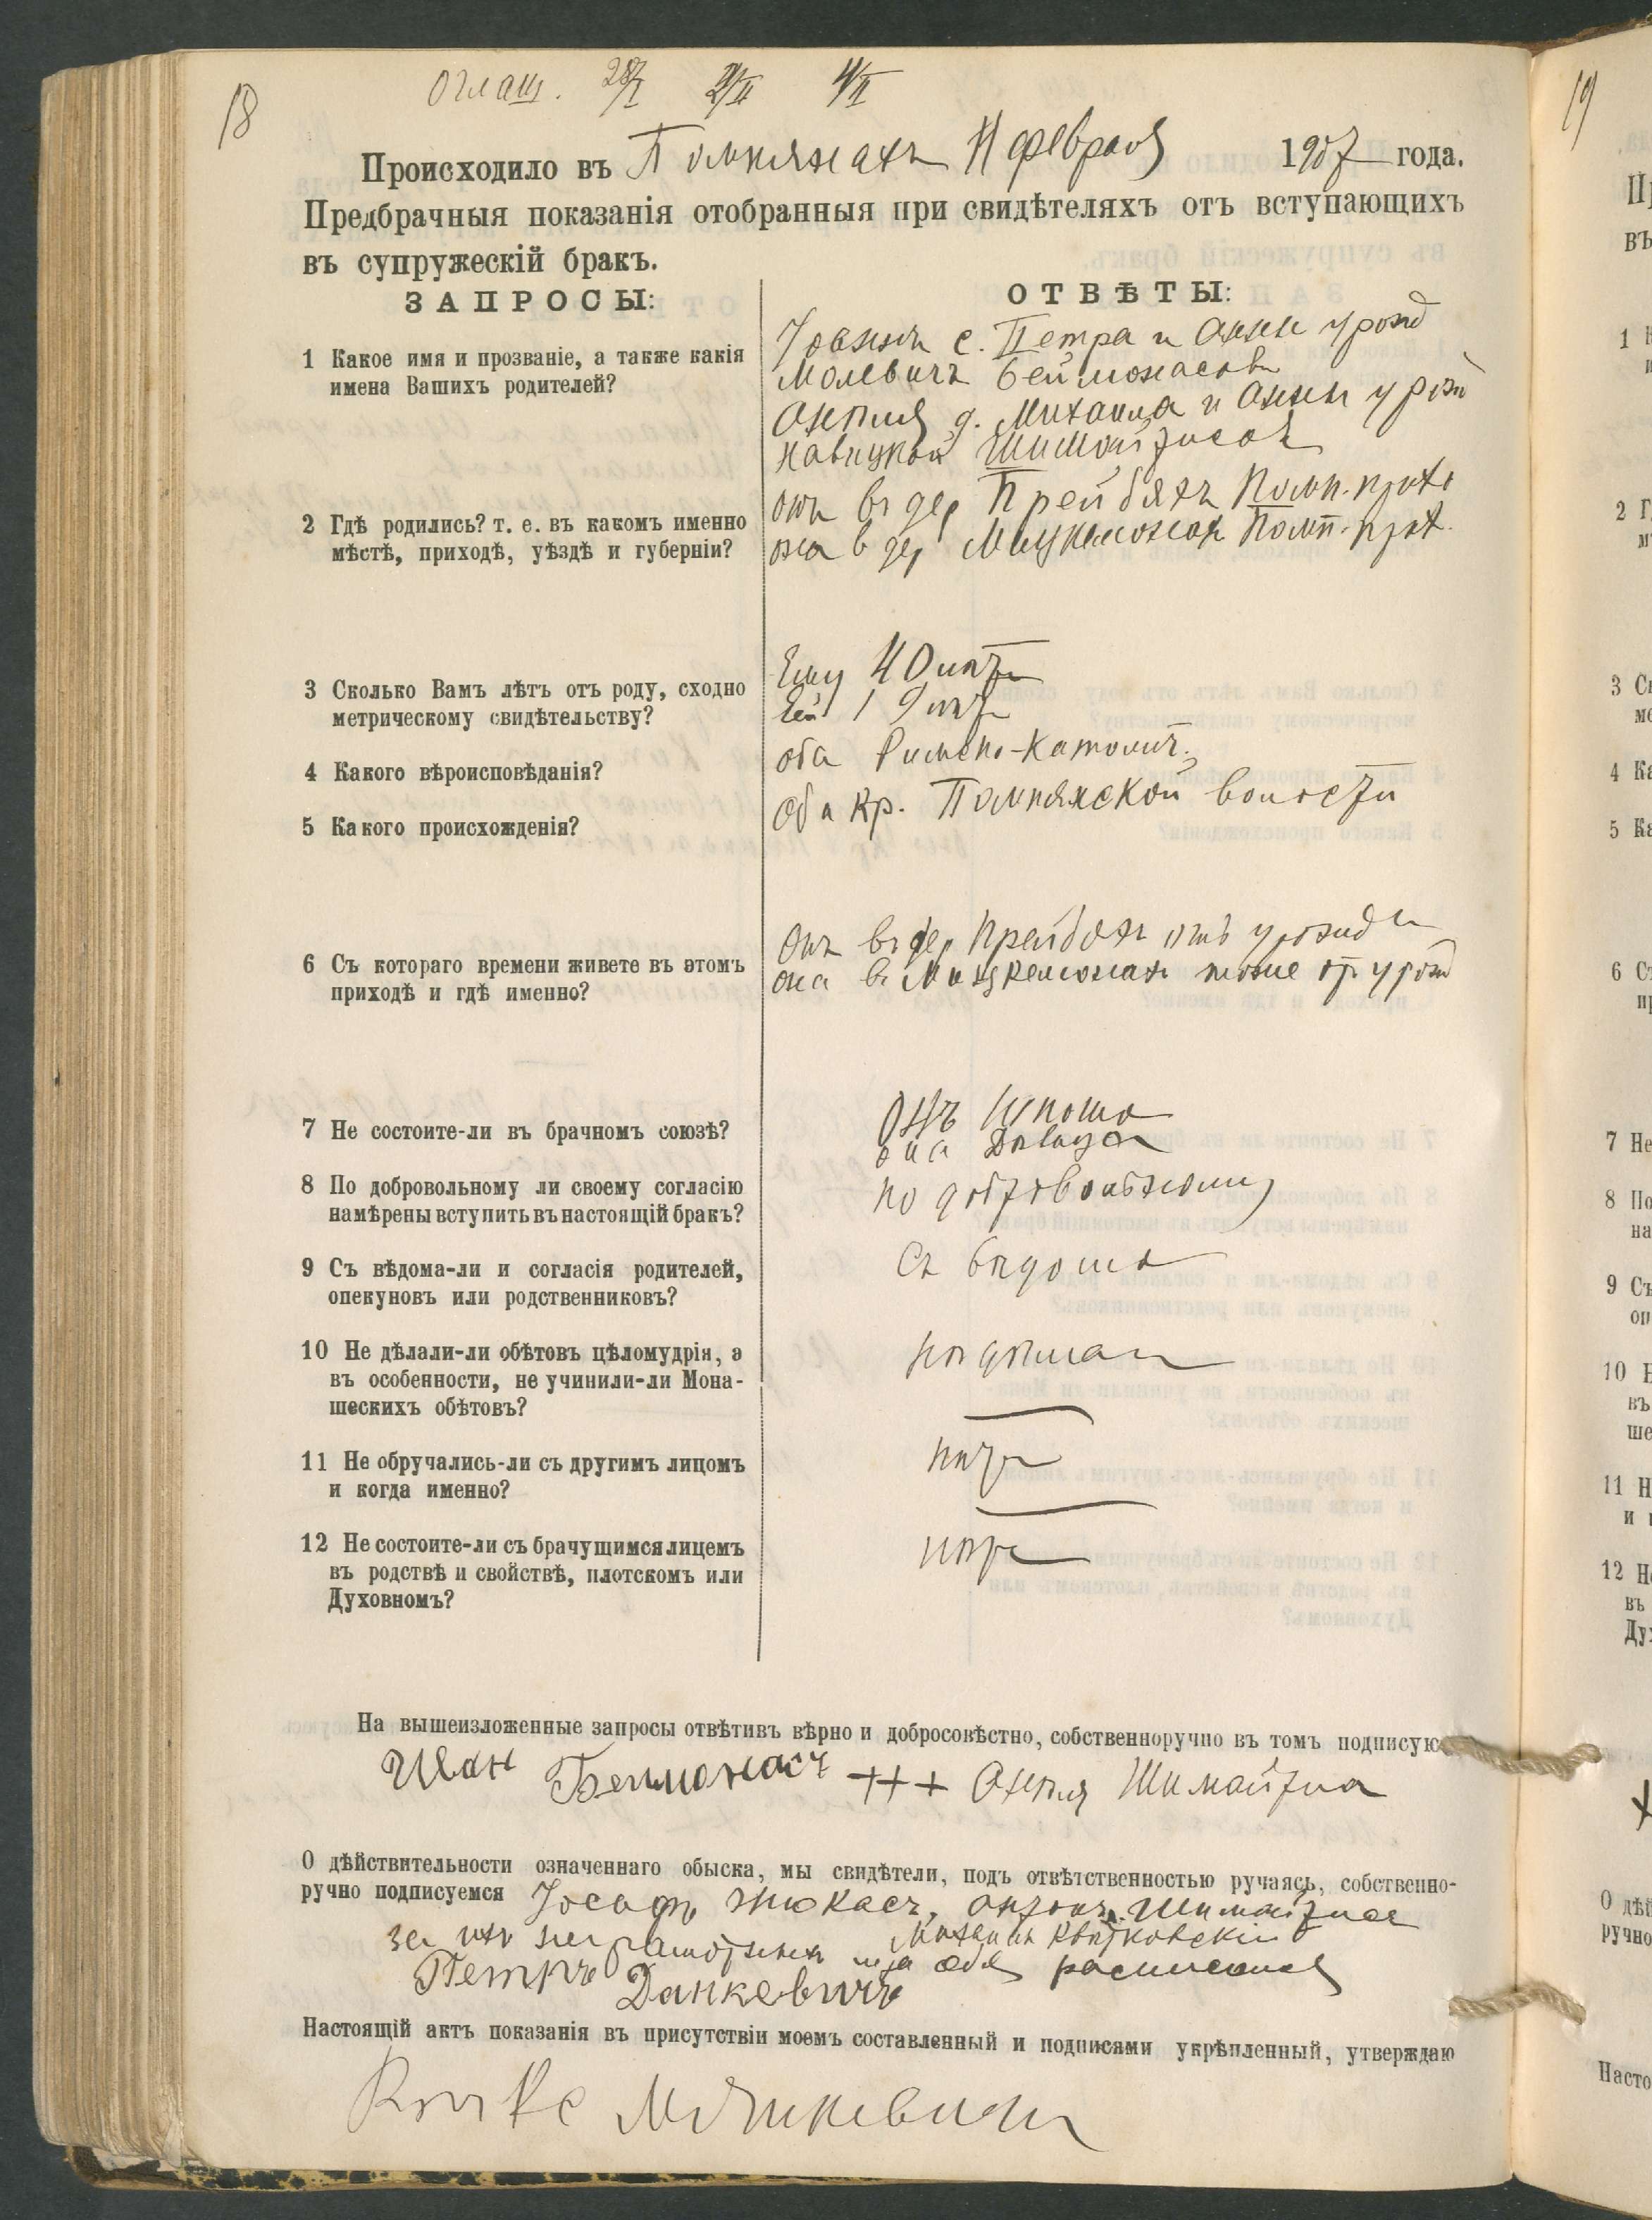 18
оглаш. 28/I 2/II 4/II
Происходило въ Помпянахъ 4 февраля 1907 года.
Предбрачныя показанія отобранныя при свидѣтеляхъ отъ вступающихъ
въ супружескій бракъ.
ЗАПРОСЫ:
1 Какое имя и прозваніе, а также какія
имена Вашихъ родителей?
2 Гдѣ родились? т. е. въ какомъ именно
мѣстѣ, приходѣ, уѣздѣ и губерніи?
3 Сколько Вамъ лѣтъ отъ роду, сходно
метрическому свидѣтельству?
4 Какого вѣроисповѣданія?
5 Какого происхожденія?
6 Съ котораго времени живете въ этомъ
приходѣ и гдѣ именно?
7 Не состоите-ли въ брачномъ союзѣ?
8 По добровольному ли своему согласію
намѣрены вступить въ настоящій бракъ?
9 Съ вѣдома-ли и согласія родителей,
опекуновъ или родственниковъ?
10 Не дѣлали-ли обѣтовъ цѣломудрія, а
въ особенности, не учинили-ли Мона-
шескихъ обѣтовъ?
11 Не обручались-ли съ другимъ лицомъ
и когда именно?
12 Не состоите-ли съ брачущимся лицемъ
въ родствѣ и свойствѣ, плотскомъ или
Духовномъ?
ОТВѢТЫ:
Іоаннъ с. Петра и Анны урожд
Малевичъ
д. Михаила и Анны урожд
онъ въ дер Прейбяхъ Помп. прих
она в дер Помп. прих.
Ему 40 лѣтъ
Ей 19 лѣтъ
оба Римско-Католич.
Оба кр. Помпянской волости
Онъ въ дер Прейбяхъ отъ урожд
она въ тоже отъ урожд
Онъ юноша
она Дѣвица
по добровольному
Съ вѣдома
не дѣлали
нѣтъ
нѣтъ
На вышеизложенные запросы отвѣтивъ вѣрно и добросовѣстно, собственноручно въ томъ подписую
Иван +++ Шимайтиа
О дѣйствительности означеннаго обыска, мы свидѣтели, подъ отвѣтственностью ручаясь, собственно-
ручно подписуемся Іосифъ Жюкасъ, Антонъ
Квятковскій
за ихъ неграмотныхъ и за себя расписался
Петръ Данкевичъ
Настоящій актъ показанія въ присутствіи моемъ составленный и подписями укрѣпленный, утверждаю
19